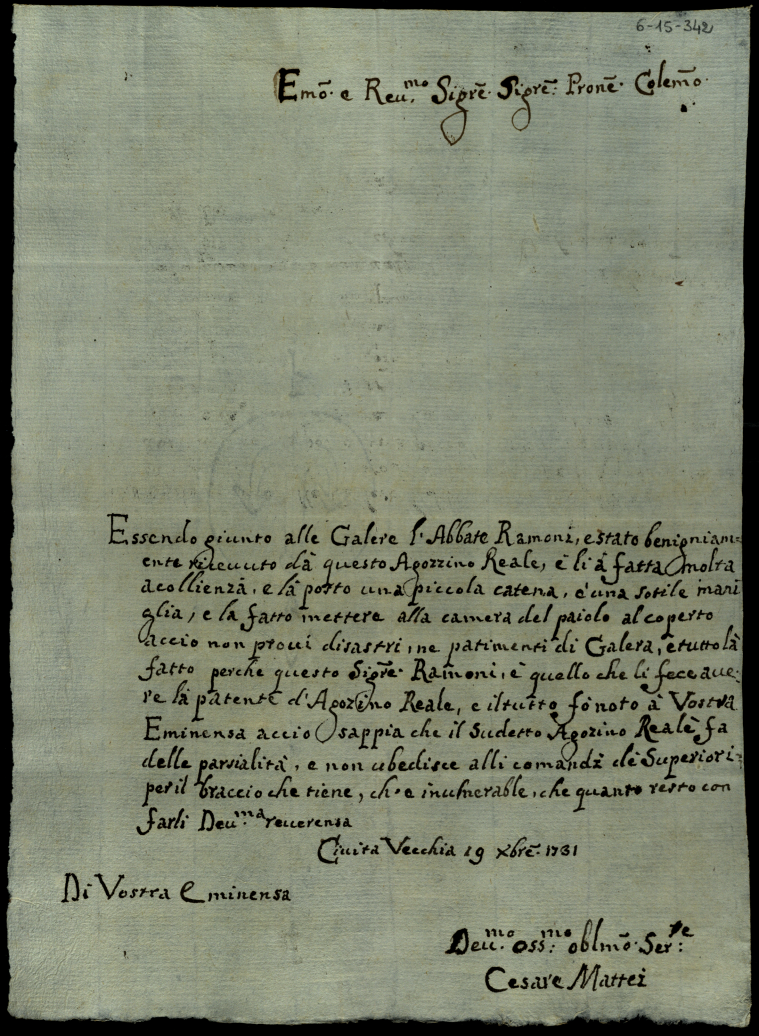 6-15-342
Emõ. e Reu.mo Sigrẽ. Sigrẽ: Pronẽ. Colemõ.
Essendo giunto alle Galere l'Abbate Ramoni, e stato benigniam:
ente riceuuto dà questo Agozzino Reale, è li à fatta molta
acollienza, e là posto una piccola catena, è una sotile mani
glia, e la fatto mettere alla camera del paiolo al coperto
accio non proui disastri, ne patimenti di Galera, è tutto là
fatto perche questo Sigrẽ. Ramoni, è quello che li fece aue:
re là patente d'Agozino Reale, e il tutto fò noto à Vostra
Eminensa accio sappia che il sudetto Agozino Reale fa
delle parsialità, e non ubedisce alli comandi dè Superiori
per il braccio che tiene, ch'e inuulnerable, che quanto resto con
farli Deu.ma reuerensa
Ciuita Vecchia 19 Xbrẽ. 1731
Di Vostra Eminensa
Deu.mo oss.mo oblmõ. Ser.re
Cesare Mattei